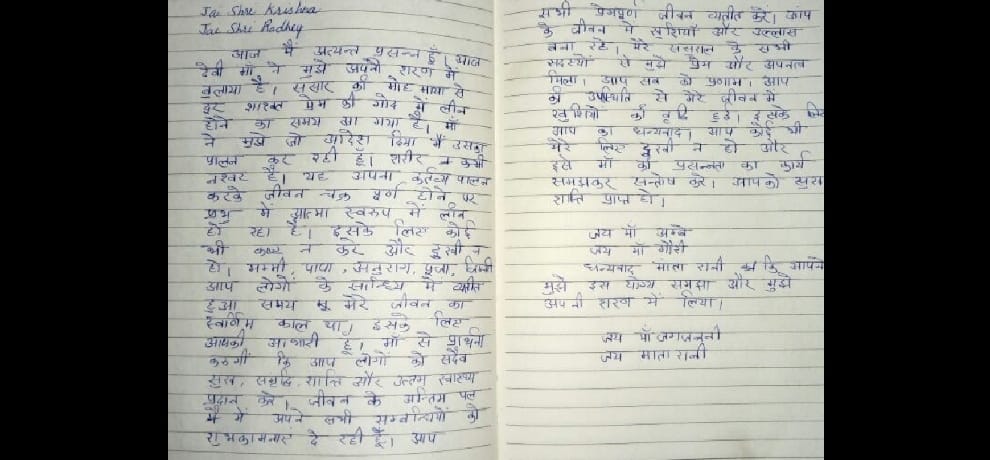 Jai Shri Krishna
Jai Shri Radhey
आज मैं अत्यन्त प्रसन्न हूँ। आज
देवी माँ ने मुझे अपनी शरण में
बुलाया है। संसार की मोह माया से
दूर शाश्वत प्रेम की गोद में लीन
होने का समय आ गया है। माँ
ने मुझे जो आदेश दिया मैं उसका
पालन कर रही हूँ। शरीर
नश्वर है। यह अपना कर्तव्य पालन
करके जीवन चक्र पूर्ण होने पर
प्रभु में आत्मा स्वरुप में लीन
हो रहा है। इसके लिए कोई
भी कष्ट न करे और दुखी न
हो। मम्मी, पापा, अनुराग, पूजा,
आप लोगों के सान्निध्य में व्यतीत
हुआ समय मेरे जीवन का
स्वर्णिम काल था। इसके लिए
आपकी आभारी हूँ। माँ से प्रार्थना
करुगीं कि आप लोगों को सदैव
सुख, समृद्धि, शान्ति और उत्तम स्वास्थ्य
प्रदान करे। जीवन के अन्तिम पल
में मैं अपने सभी सम्बन्धियों को
शुभकामनाएं दे रही हूँ। आप
सभी प्रेमपूर्ण जीवन व्यतीत करें। आप
के जीवन में खुशियाँ और उल्लास
बना रहे। मेरे ससुराल के सभी
सदस्यों से मुझे प्रेम और अपनत्व
मिला। आप सब को प्रणाम। आप
की उपस्थिति से मेरे जीवन में
खुशियों की वृद्धि हुई। इसके लिए
आप का धन्यवाद। आप कोई भी
मेरे लिए दुखी न हो और
इसे माँ की प्रसन्नता का कार्य
समझकर सन्तोष करे। आपको सुख
शान्ति प्राप्त हो।
जय माँ अम्बे
जय माँ गौरी
धन्यवाद माता रानी का कि आपने
मुझे इस योग्य समझा और मुझे
अपनी शरण में लिया।
जय माँ जगजननी
जय माता रानी